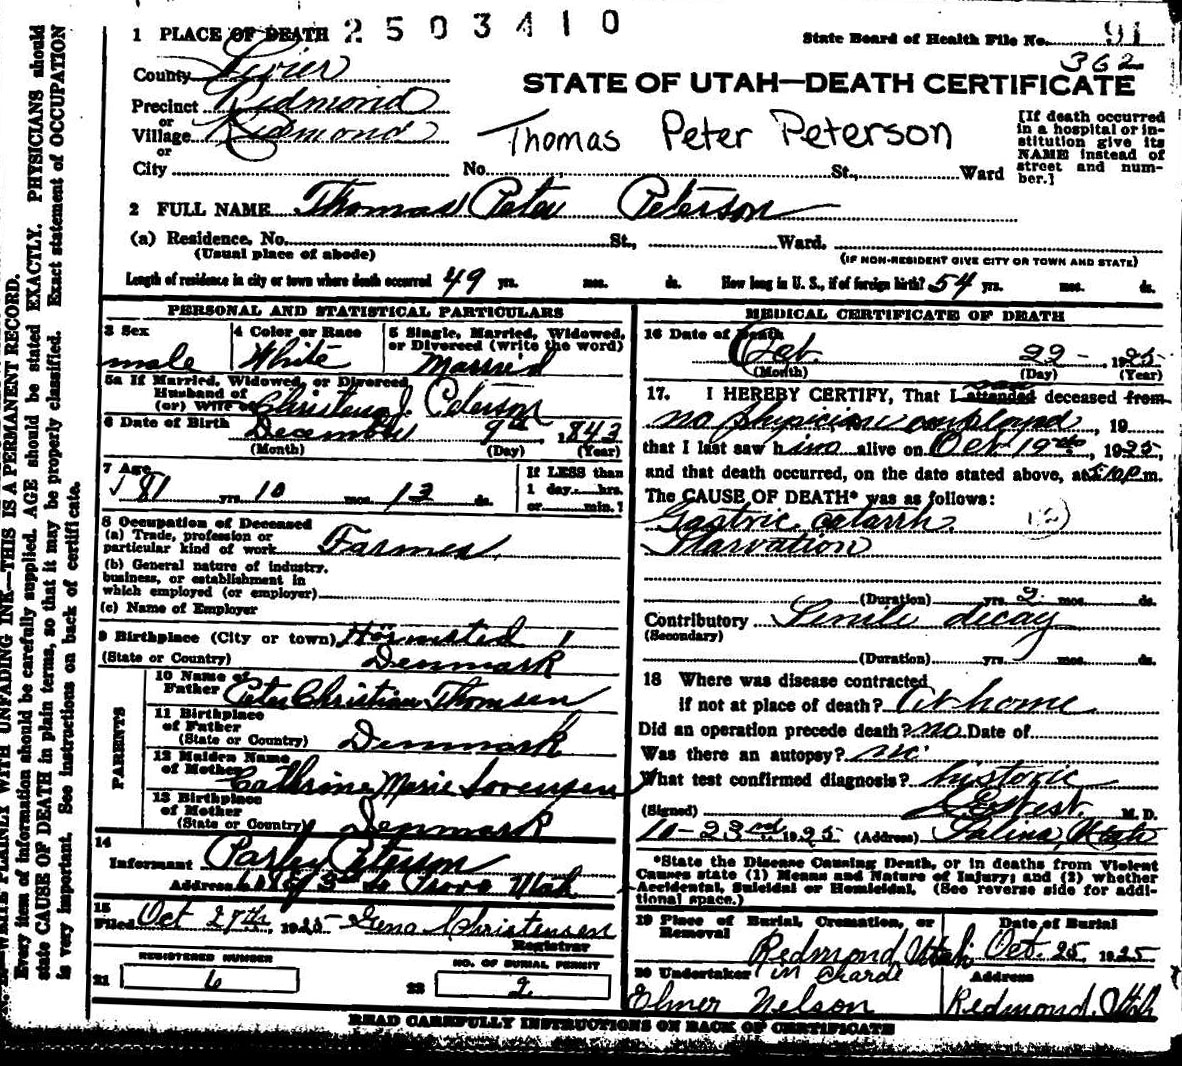 1 PLACE OF DEATH 2503410
State Board of Health File No. 91
362
County Sevier
STATE OF UTAH—DEATH CERTIFICATE
Precinct Redmond
or
Village Redmond
or
Thomas Peter Peterson
[If death occurred in a hospital or institution give its NAME instead of street and number.]
City No. St., Ward
2 FULL NAME Thomas Peter Peterson
(a) Residence. No. St., Ward.
(Usual place of abode)
(IF NON-RESIDENT GIVE CITY OR TOWN AND STATE)
Length of residence in city or town where death occurred 49 yrs. mos. ds. How long in U. S., if of foreign birth? 54 yrs. mos. ds.
PERSONAL AND STATISTICAL PARTICULARS
3 Sex
male
4 Color or Race
White
5 Single, Married, Widowed, or Divorced (write the word)
Married
5a If Married, Widowed, or Divorced
Husband of
(or) Wife of Christena J. Peterson
6 Date of Birth
December 9th, 1843
(Month) (Day) (Year)
7 Age
81 yrs. 10 mos. 13 ds.
If LESS than
1 day hrs.
or min.?
8 Occupation of Deceased
(a) Trade, profession or
particular kind of work Farmer
(b) General nature of industry,
business, or establishment in
which employed (or employer)
(c) Name of Employer
9 Birthplace (City or town)
(State or Country) Denmark
PARENTS
10 Name of
Father Peter Christian Thomsen
11 Birthplace
of Father
(State or Country) Denmark
12 Maiden Name
of Mother Cathrine Marie Sorensen
13 Birthplace
of Mother
(State or Country) Denmark
14
Informant Parley Peterson
Address 3rd So Provo Utah
15
Filed Oct 27th, 1925 Gena Christensen
Registrar
REGISTERED NUMBER
21 6
NO. OF BURIAL PERMIT
22 2
MEDICAL CERTIFICATE OF DEATH
16 Date of Death
Oct. 22 1925
(Month) (Day) (Year)
17. I HEREBY CERTIFY, That I attended deceased from
saw
no physician employed, 19
that I last saw him alive on Oct 19th, 1925,
and that death occurred, on the date stated above, at 5:10 p m.
The CAUSE OF DEATH* was as follows:
Gastric catarrh.
Starvation
(Duration) yrs. 2 mos. ds.
Contributory Senile decay
(Secondary)
(Duration) yrs. mos. ds.
18 Where was disease contracted
if not at place of death? At home
Did an operation precede death? no Date of
Was there an autopsy? no
What test confirmed diagnosis? historic
(Signed) M. D.
10-23rd 1925 (Address) Salina, Utah
*State the Disease Causing Death, or in deaths from Violent
Causes state (1) Means and Nature of Injury; and (2) whether
Accidental, Suicidal or Homicidal. (See reverse side for additional space.)
19 Place of Burial, Cremation, or
Removal
Redmond, Utah
Date of Burial
Oct. 25 1925
20 Undertaker in charge
Elmer Nelson
Address
Redmond, Utah
READ CAREFULLY INSTRUCTIONS ON BACK OF CERTIFICATE
WRITE PLAINLY WITH UNFADING INK—THIS IS A PERMANENT RECORD.
Every item of information should be carefully supplied. AGE should be stated EXACTLY. PHYSICIANS should
state CAUSE OF DEATH in plain terms, so that it may be properly classified. Exact statement of OCCUPATION
is very important. See instructions on back of certificate.